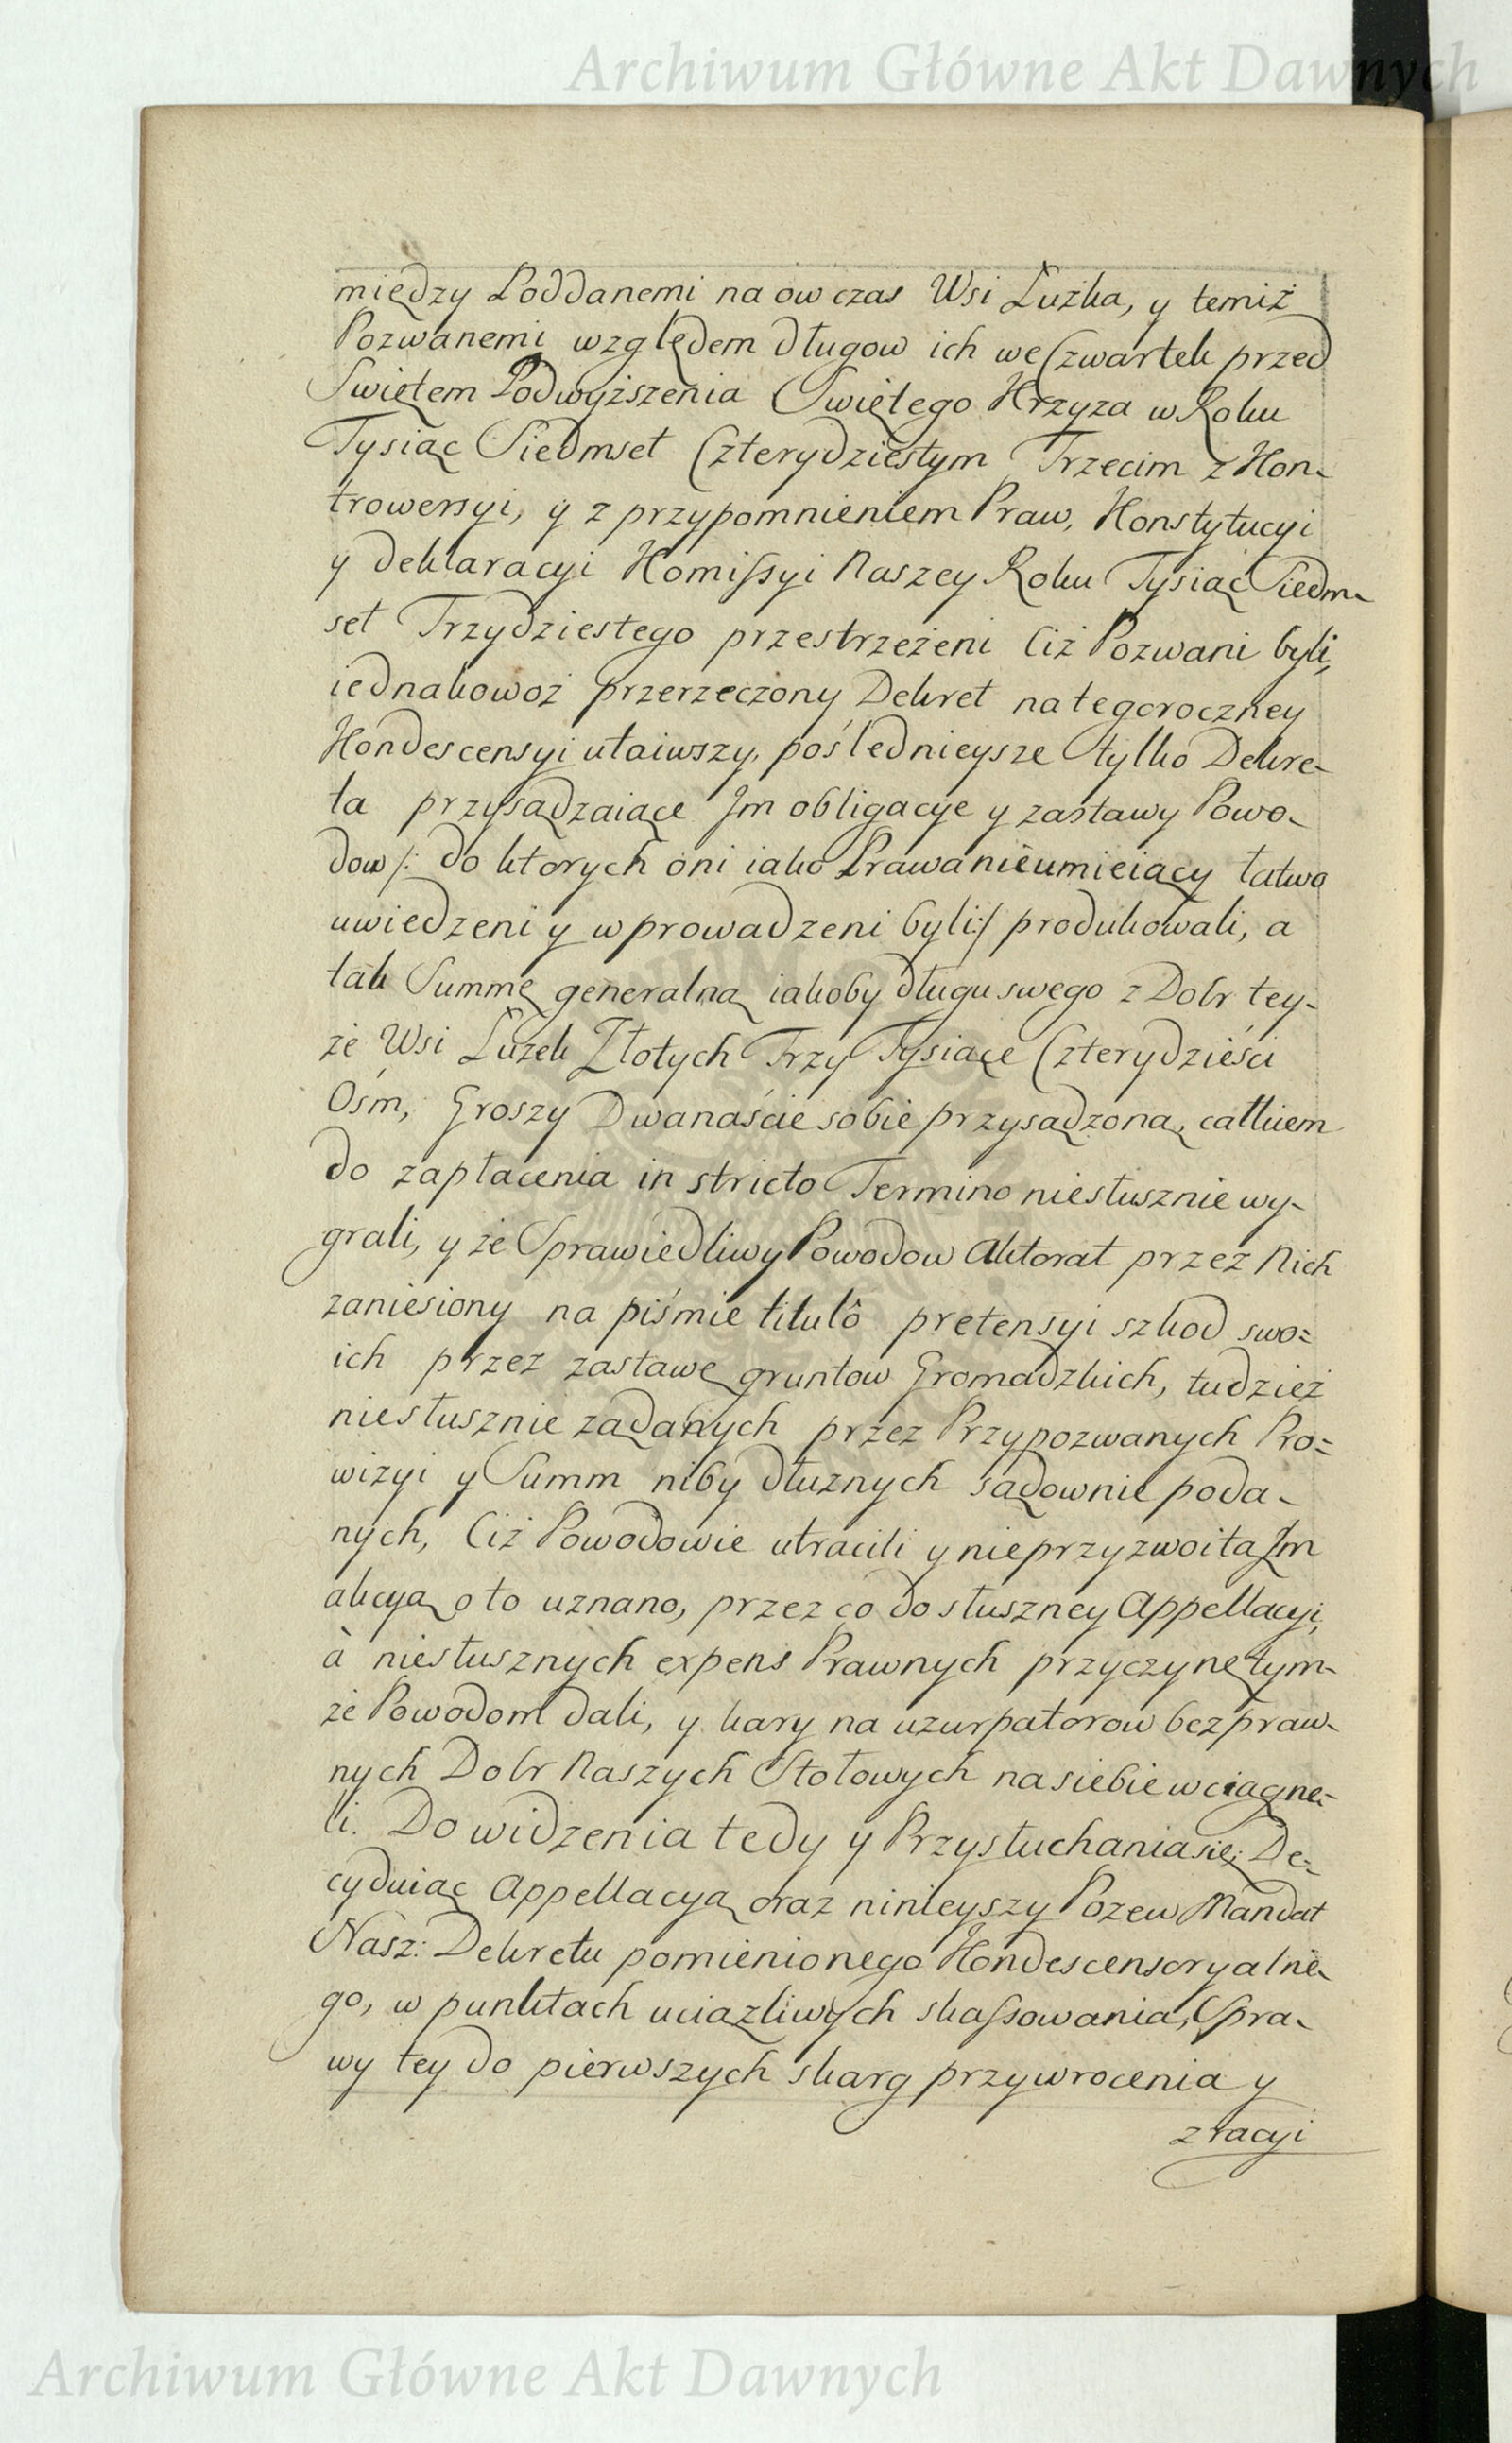 Archiwum Główne Akt Dawnych
między Poddanemi na ow czas Wsi Łużka, y temiż
Pozwanemi względem długow ich we Czwartek przed
Swiętem Podwyższenia Swiętego Krzyza w Roku
Tysiąc Siedmset Czterydziestym Trzecim z Kon-
trowersyi, y z przypomnieniem Praw, Konstytucyi
y deklaracyi Komissyi Naszey Roku Tysiąc Siedm-
set Trzydziestego przestrzeżeni Ciż Pozwani byli,
iednakowoż przerzeczony Dekret na tegoroczney
Kondescensyi utaiwszy, poślednieysze tylko Dekre-
ta przysądzaiące Im obligacye y zastawy Powo-
dow /: do ktorych oni iako Prawa nieumieiący łatwo
uwiedzeni y wprowadzeni byli :/ produkowali, a
tak Summę generalną iakoby długu swego z Dobr tey-
że Wsi Łużek Złotych Trzy Tysiące Czterydzieści
Ośm, Groszy Dwanaście sobie przysądzoną, całkiem
do zapłacenia in stricto Termino niesłusznie wy-
grali, y że Sprawiedliwy Powodow Aktorat przez Nich
zaniesiony na piśmie titulô pretensyi szkod swo=
ich przez zastawę gruntow Gromadzkich, tudzież
niesłusznie żądanych przez Przypozwanych Pro=
wizyi y Summ niby dłużnych sądownie poda-
nych, Ciż Powodowie utracili y nieprzyzwoitą Im
akcyą o to uznano, przez co do słuszney Appellacyi,
à niesłusznych expens Prawnych przyczynę tym-
że Powodom dali, y kary na uzurpatorow bezpraw-
nych Dobr Naszych Stołowych na siebie wciągnę-
li. Do widzenia tedy y Przysłuchania się, De-
cyduiąc Appellacyą oraz ninieyszy Pozew Mandat
Nasz: Dekretu pomienionego Kondescensoryalne-
go, w punktach uciążliwych skassowania, Spra-
wy tey do pierwszych skarg przywrocenia y
z racyi
Archiwum Główne Akt Dawnych